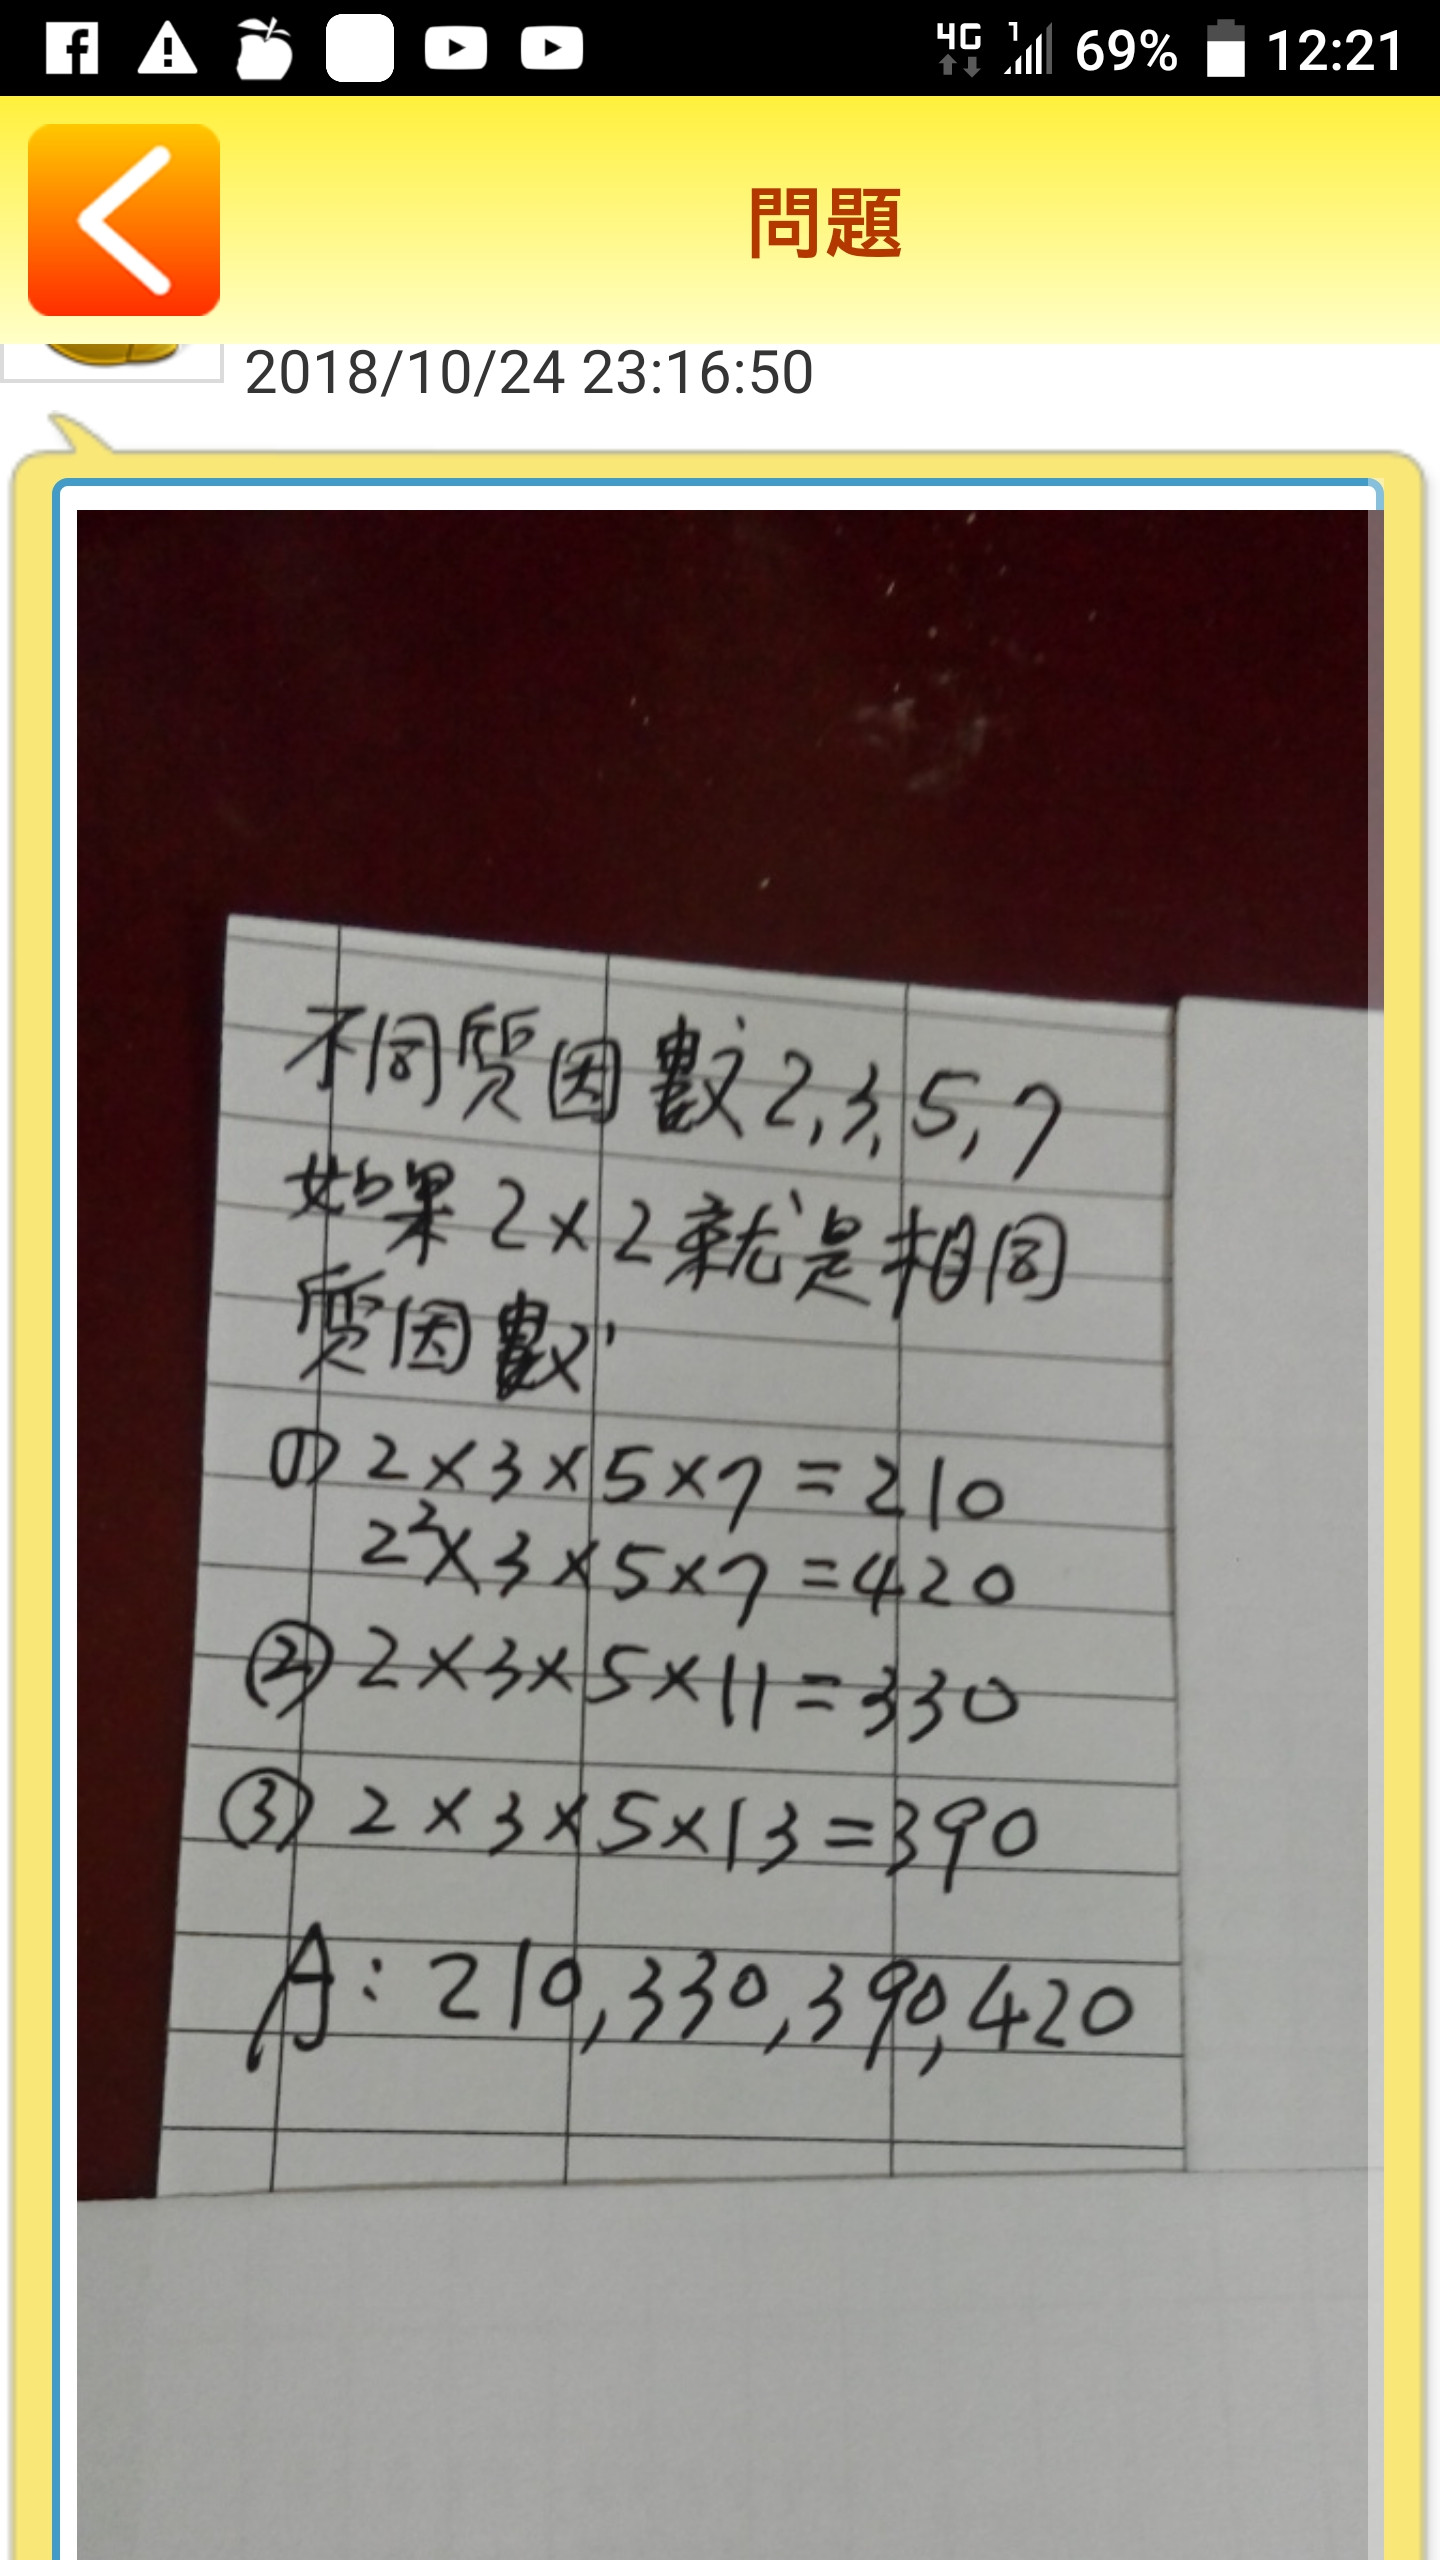 4G 1 69% 12:21
問題
2018/10/24 23:16:50
不同質因數2,3,5,7
如果2×2就是相同
質因數
① 2×3×5×7=210
2²×3×5×7=420
② 2×3×5×11=330
③ 2×3×5×13=390
A:210,330,390,420